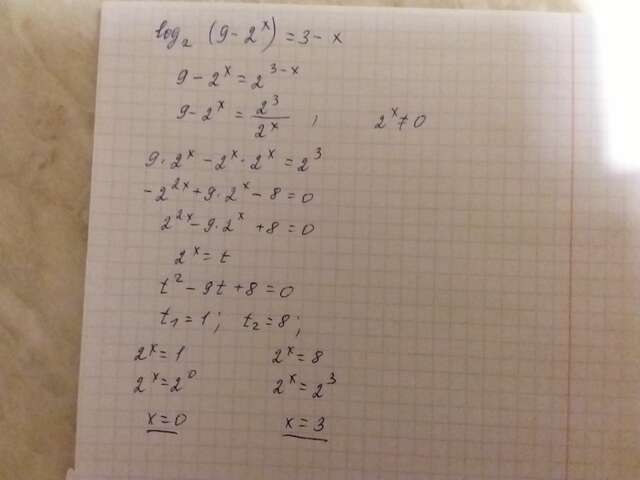 log₂ (9 - 2^x) = 3 - x
9 - 2^x = 2^(3-x)
9 - 2^x = 2^3/2^x ; 2^x ≠ 0
9 · 2^x - 2^x · 2^x = 2^3
-2^(2x) + 9 · 2^x - 8 = 0
2^(2x) - 9 · 2^x + 8 = 0
2^x = t
t^2 - 9t + 8 = 0
t₁ = 1 ; t₂ = 8 ;
2^x = 1 2^x = 8
2^x = 2^0 2^x = 2^3
x = 0 x = 3